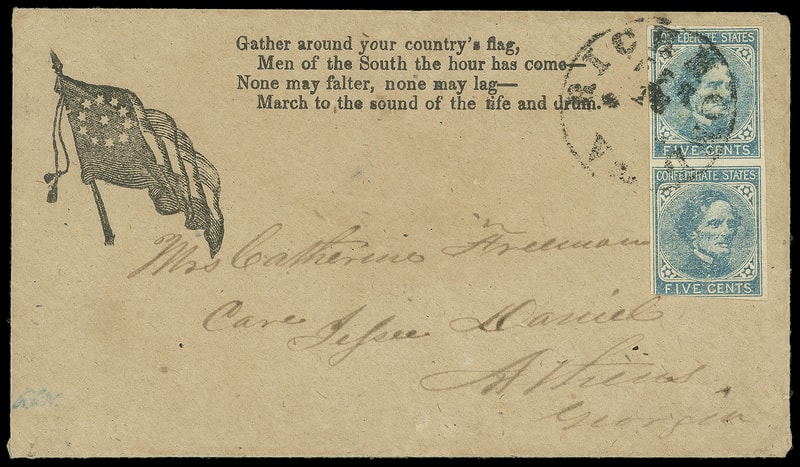 Gather around your country's flag,
Men of the South the hour has come—
None may falter, none may lag—
March to the sound of the fife and drum.
RICHMOND VA
CONFEDERATE STATES
FIVE CENTS
CONFEDERATE STATES
FIVE CENTS
Mrs Catherine Freeman
Care Jessee Daniel
Athens
Georgia